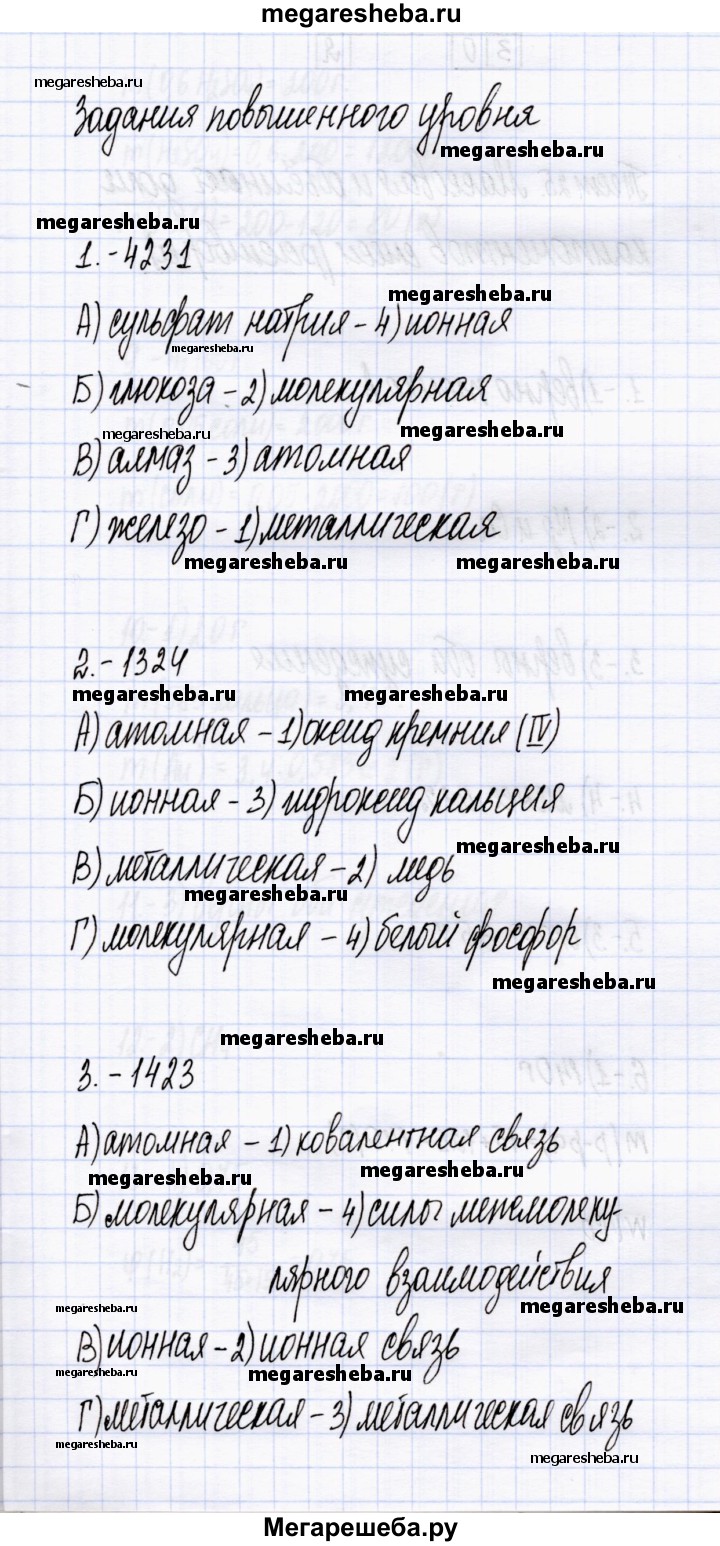 megaresheba.ru
megaresheba.ru
Задания повышенного уровня
megaresheba.ru
megaresheba.ru
1.-4231
megaresheba.ru
А) сульфат натрия - 4) ионная
megaresheba.ru
Б) глюкоза - 2) молекулярная
megaresheba.ru
megaresheba.ru
В) алмаз - 3) атомная
Г) железо - 1) металлическая
megaresheba.ru megaresheba.ru
2.-1324
megaresheba.ru megaresheba.ru
А) атомная - 1) оксид кремния (IV)
Б) ионная - 3) гидроксид кальция
megaresheba.ru
В) металлическая - 2) медь
megaresheba.ru
Г) молекулярная - 4) белый фосфор
megaresheba.ru
megaresheba.ru
3.-1423
А) атомная - 1) ковалентная связь
megaresheba.ru megaresheba.ru
Б) молекулярная - 4) силы межмолеку
лярного взаимодействия
megaresheba.ru megaresheba.ru
В) ионная - 2) ионная связь
megaresheba.ru megaresheba.ru
Г) металлическая - 3) металлическая связь
megaresheba.ru
megaresheba.ru
Мегарешеба.ру